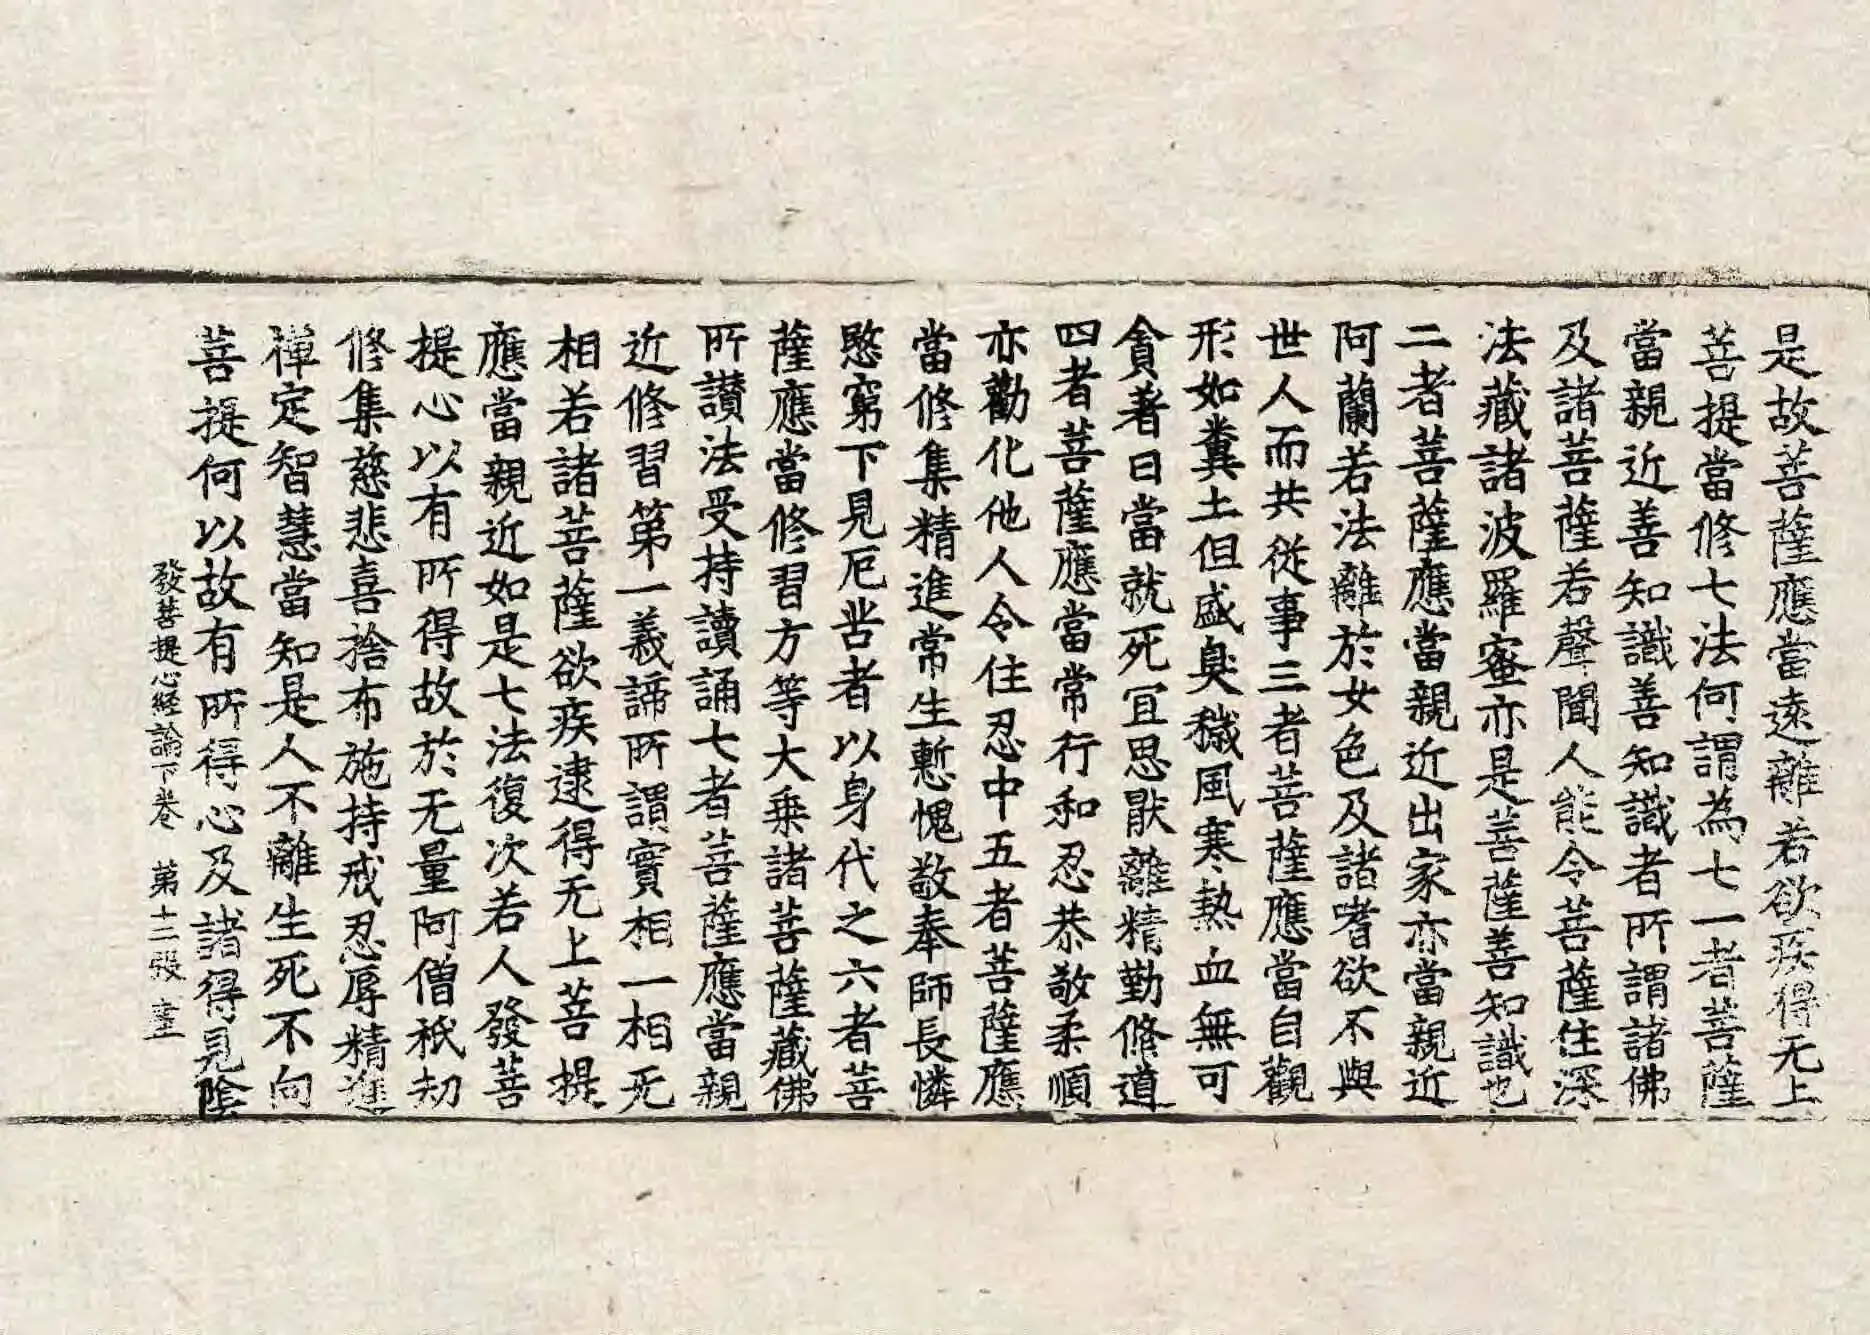 是故菩薩應當遠離若欲疾得无上
菩提當修七法何謂為七一者菩薩
當親近善知識善知識者所謂諸佛
及諸菩薩若聲聞人能令菩薩住深
法藏諸波羅蜜亦是菩薩善知識也
二者菩薩應當親近出家亦當親近
阿蘭若法離於女色及諸嗜欲不與
世人而共從事三者菩薩應當自觀
形如糞土但盛臭穢風寒熱血無可
貪著日當就死冝思猒離精勤修道
四者菩薩應當常行和忍恭敬柔順
亦勸化他人令住忍中五者菩薩應
當修集精進常生慙愧敬奉師長憐
愍窮下見厄苦者以身代之六者菩
薩應當修習方等大乘諸菩薩藏佛
所讃法受持讀誦七者菩薩應當親
近修習第一義諦所謂實相一相无
相若諸菩薩欲疾逮得无上菩提
應當親近如是七法復次若人發菩
提心以有所得故於无量阿僧祇劫
修集慈悲喜捨布施持戒忍辱精進
禪定智慧當知是人不離生死不向
菩提何以故有所得心及諸得見陰
發菩提心経論下卷 第十二張